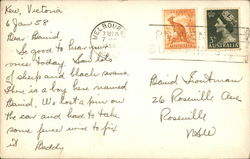 Kew, Victoria
6 Jan 58
Dear David,
So good to hear your
voice today. Saw lots
of sheep and black swans.
There is a boy here named
David. We lost a pin on
the car and had to take
some fence wire to fix
it Daddy
MELBOURNE
AUSTRALIA
David
26 Roseville Ave
Roseville
NSW